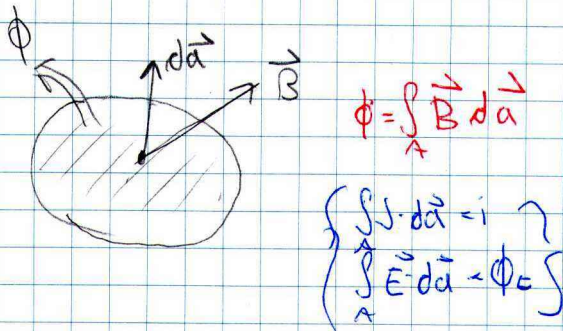 ϕ
da⃗
B⃗
ϕ = ∫_A B⃗ da⃗
{ ∫_A J · da⃗ = i }
{ ∫_A E⃗ · da⃗ = ϕ_E }